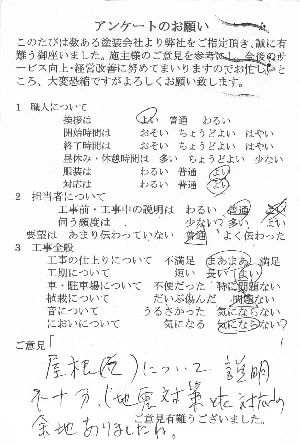 アンケートのお願い
このたびは数ある塗装会社より弊社をご指定頂き、誠に有
難う御座いました。施主様のご意見を参考にし、今後のサ
ービス向上・経営改善に努めてまいりますのでお忙しいと
ころ、大変恐縮ですがよろしくお願い致します。
1 職人について
挨拶は よい 普通 わるい
開始時間は おそい ちょうどよい はやい
終了時間は おそい ちょうどよい はやい
昼休み・休憩時間は 多い ちょうどよい 少ない
服装は わるい 普通 よい
対応は わるい 普通 よい
2 担当者について
工事前・工事中の説明は わるい 普通 よい
伺う頻度は 少ない 多い よい
要望は あまり伝わっていない 普通 よく伝わった
3 工事全般
工事の仕上りについて 不満足 まあまあ 満足
工期について 短い 長い よい
車・駐車場について 不便だった 特に問題ない
植栽について だいぶ傷んだ 問題ない
音について うるさかった 気にならない
においについて 気になる 気にならない
ご意見「
屋根 について 説明
不十分、(地震対策
余地ありましたね。
ご意見有難うございました。